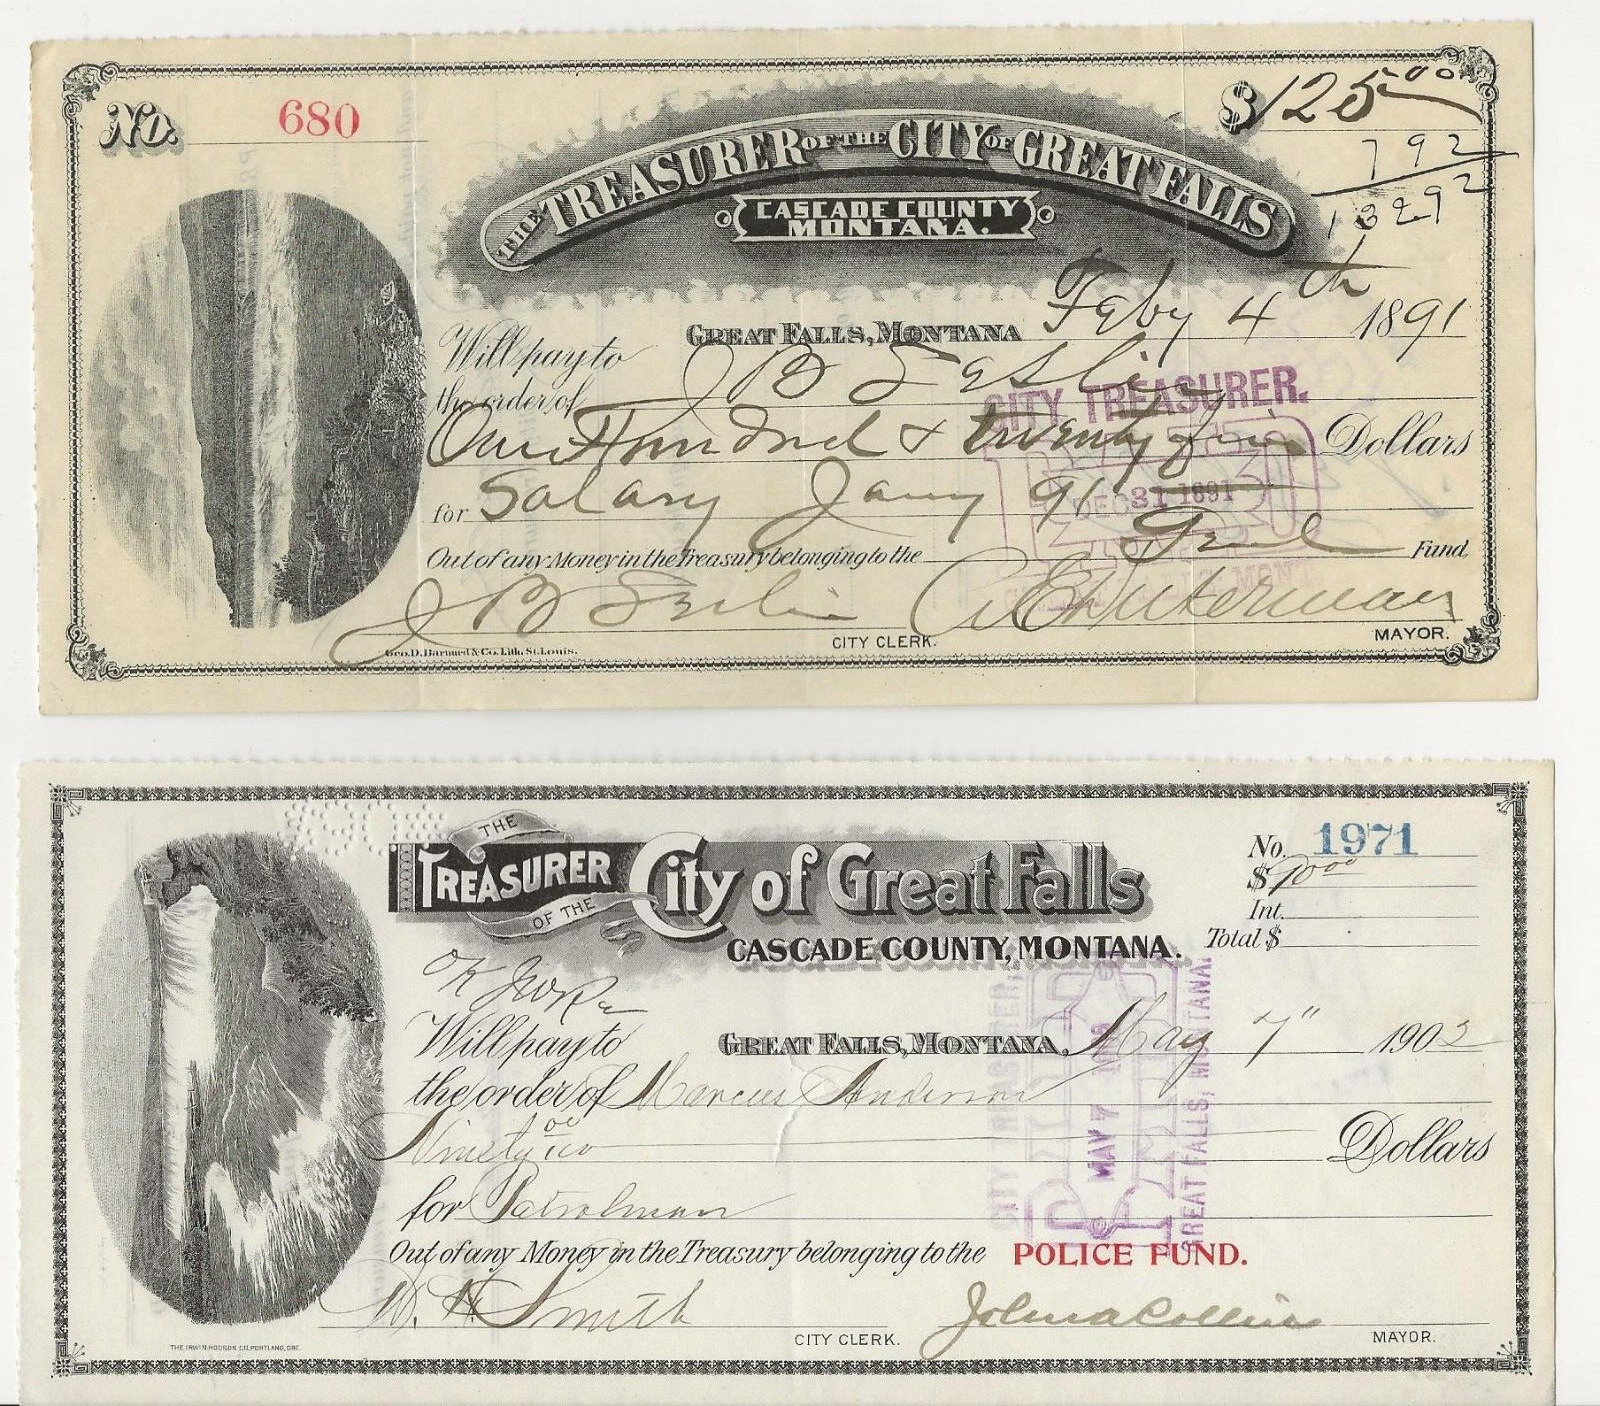 No. 680
$125.00
7 92
132 92
THE TREASURER OF THE CITY OF GREAT FALLS
CASCADE COUNTY
MONTANA.
GREAT FALLS, MONTANA Feby 4th 1891
Will pay to
the order of J B
CITY TREASURER.
One Hundred & twenty five Dollars
for Salary Jany 91
DEC 31 1891
Out of any Money in the Treasury belonging to the Genl Fund.
J B
CITY CLERK.
MAYOR.
Geo. D. Barnard & Co. Lith. St. Louis.
THE
TREASURER
OF THE
City of Great Falls
CASCADE COUNTY, MONTANA.
No. 1971
$90 00
Int.
Total $
OK
Will pay to
GREAT FALLS, MONTANA, May 7" 1902
the order of Marcus Anderson
Ninety 00/100 Dollars
for Patrolman
CITY TREASURER.
PAID
MAY 7
GREAT FALLS, MONTANA.
Out of any Money in the Treasury belonging to the POLICE FUND.
W. H. Smith
CITY CLERK.
John A Collins
MAYOR.
THE IRWIN-HODSON CO. PORTLAND, ORE.